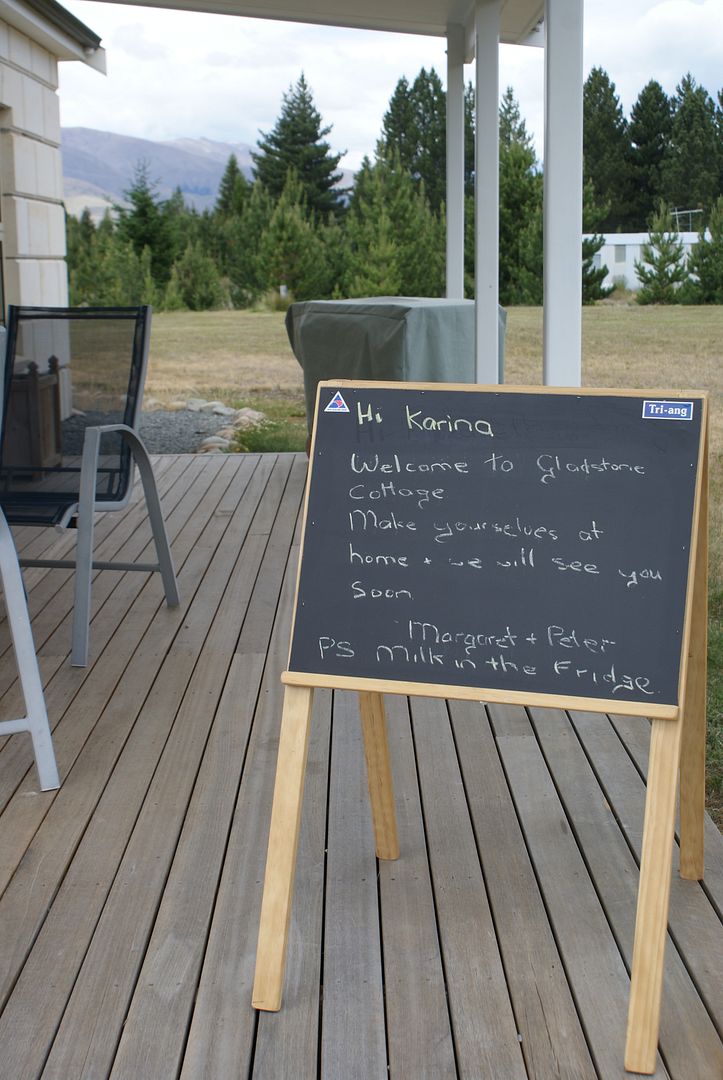 Tri-ang
Hi Karina
Welcome to Gladstone
Cottage
Make yourselves at
home + we will see you
Soon
Margaret + Peter
PS Milk in the Fridge.